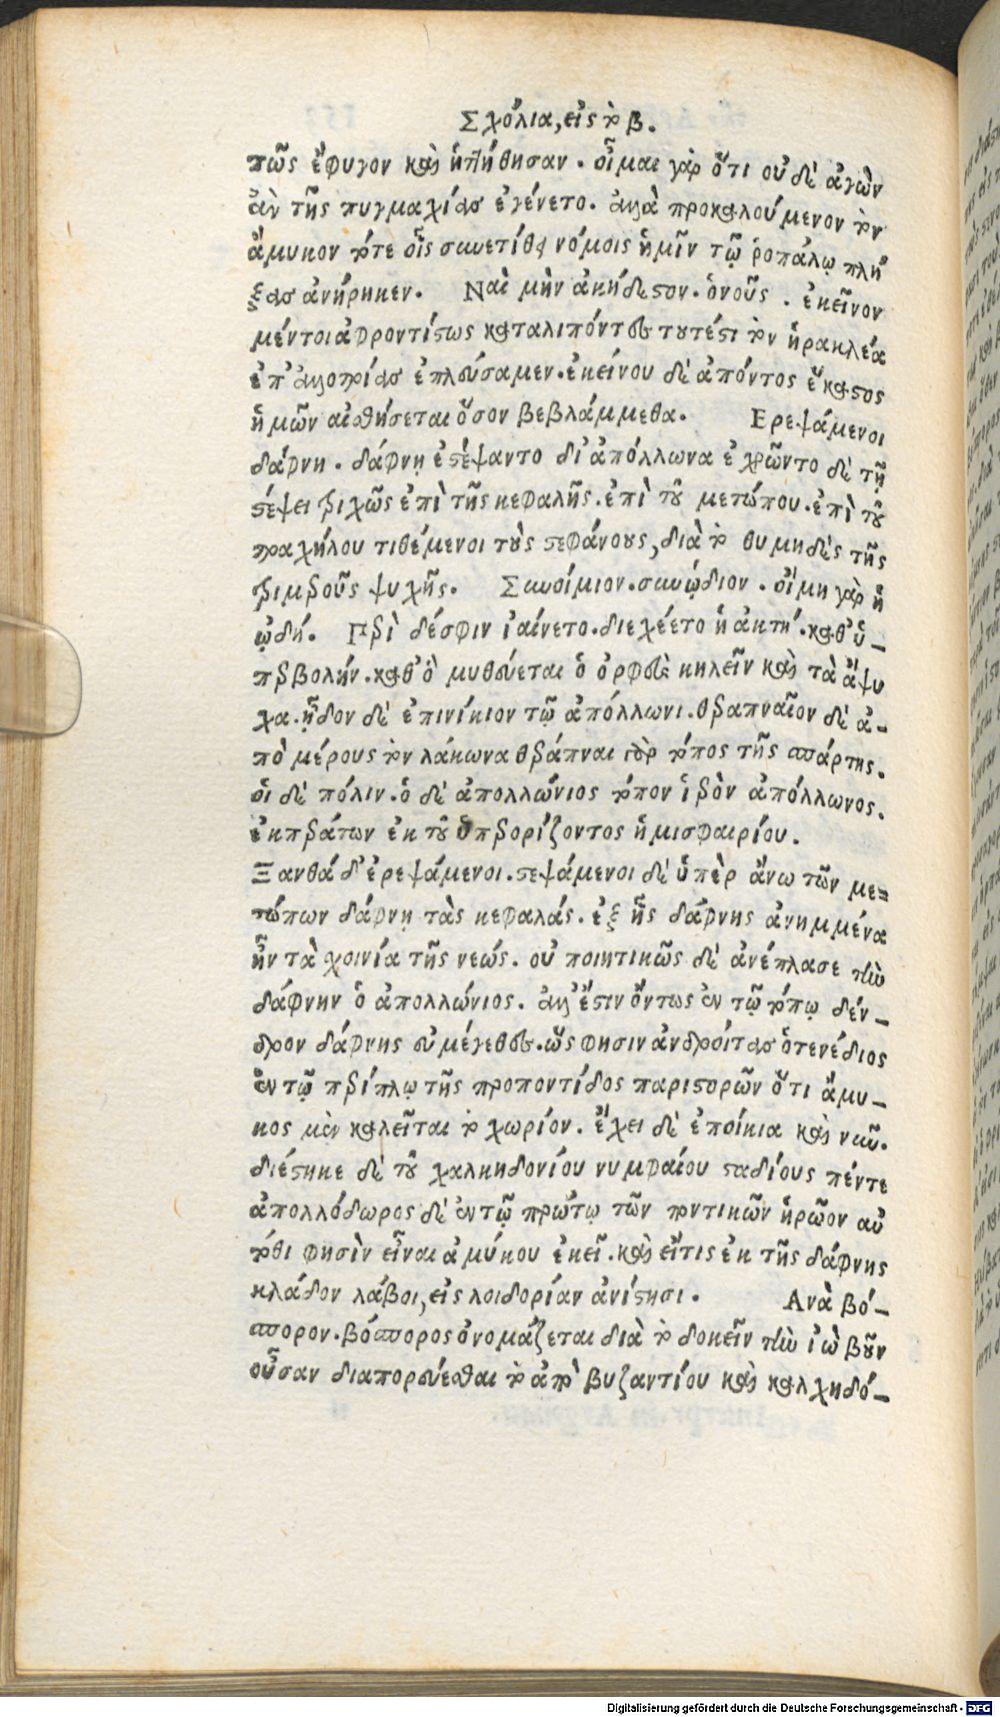 Σχόλια, εἰς τὸ β.
πῶς ἔφυγον καὶ ἡττήθησαν. οἶμαι γὰρ ὅτι οὐδὲ ἀγὼν
ἂν τῆς πυγμαχίας ἐγένετο. ἀλλὰ προκαλούμενον τὸν
ἄμυκον τότε οἷς συνετίθει νόμοις ἡμῖν τῷ ῥοπάλῳ πλή
ξας ἀνήρηκεν. Ναὶ μὴν ἀκήδεστον. ὁ νοῦς. ἐκεῖνον
μέντοι ἀφροντίστως καταλιπόντες τουτέστι τὸν ἡρακλέα
ἐπ' ἀλλοτρίας ἐπλεύσαμεν. ἐκείνου δὲ ἀπόντος ἕκαστος
ἡμῶν αἰσθήσεται ὅσον βεβλάμμεθα. Ερεψάμενοι
δάφνῃ. δάφνῃ ἐστέψαντο δι' ἀπόλλωνα ἐχρῶντο δὲ τῇ
στέψει τριχῶς ἐπὶ τῆς κεφαλῆς. ἐπὶ τοῦ μετώπου. ἐπὶ τοῦ
τραχήλου τιθέμενοι τοὺς στεφάνους, διὰ τὸ θυμηδὲς τῆς
τριμεροῦς ψυχῆς. Συνοίμιον. συνῴδιον. οἴμη γὰρ ἡ
ᾠδή. Περὶ δέσφιν ἰαίνετο. διεχέετο ἡ ἀκτή. καθ' ὑ-
περβολήν. καθ' ὃ μυθεύεται ὁ ὀρφεὺς κηλεῖν καὶ τὰ ἄψυ
χα. ᾖδον δὲ ἐπινίκιον τῷ ἀπόλλωνι. θεραπναῖον δὲ ἀ-
πὸ μέρους τὸν λάκωνα θεράπναι γὰρ τόπος τῆς σπάρτης.
οἱ δὲ πόλιν. ὁ δὲ ἀπολλώνιος τόπον ἱερὸν ἀπόλλωνος.
ἐκπεράτων ἐκ τοῦ ὑπερορίζοντος ἡμισφαιρίου.
Ξανθά δ' ἐρεψάμενοι. στεψάμενοι δὲ ὑπὲρ ἄνω τῶν με-
τώπων δάφνῃ τὰς κεφαλάς. ἐξ ἧς δάφνης ἀνημμένα
ἦν τὰ σχοινία τῆς νεώς. οὐ ποιητικῶς δὲ ἀνέπλασε τὴν
δάφνην ὁ ἀπολλώνιος. ἀλλ' ἔστιν ὄντως ἐν τῷ τόπῳ δέν-
δρον δάφνης εὐμέγεθες. ὥς φησιν ἀνδροίτας ὁ τενέδιος
ἐν τῷ περίπλῳ τῆς προποντίδος παριστορῶν ὅτι ἄμυ-
κος μὲν καλεῖται τὸ χωρίον. ἔχει δὲ ἐποίκια καὶ νῦν.
διέστηκε δὲ τοῦ χαλκηδονίου νυμφαίου σταδίους πέντε
ἀπολλόδωρος δὲ ἐν τῷ πρώτῳ τῶν ποντικῶν ἡρῷον αὐ
τόθι φησὶν εἶναι ἀμύκου ἐκεῖ. καὶ εἴ τις ἐκ τῆς δάφνης
κλάδον λάβοι, εἰς λοιδορίαν ἀνίστησι. Ανὰ βό-
σπορον. βόσπορος ὀνομάζεται διὰ τὸ δοκεῖν τὴν ἰὼ βοῦν
οὖσαν διαπορεύεσθαι τὸ ἀπὸ βυζαντίου καὶ καλχηδό-
Digitalisierung gefördert durch die Deutsche Forschungsgemeinschaft - DFG